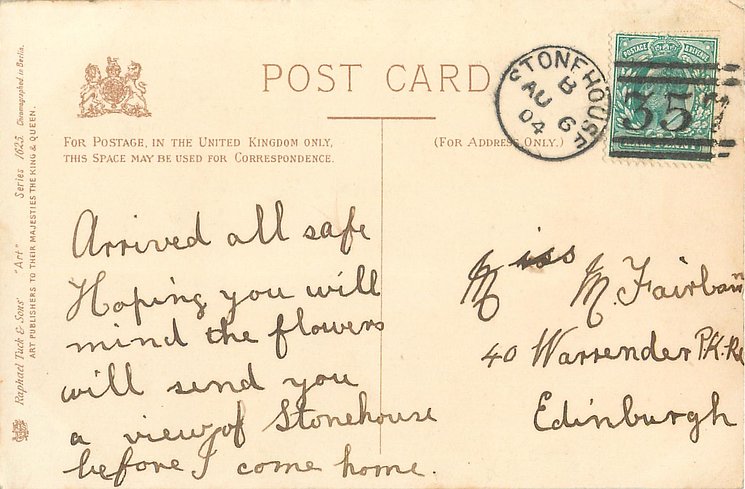 POST CARD
FOR POSTAGE, IN THE UNITED KINGDOM ONLY,
THIS SPACE MAY BE USED FOR CORRESPONDENCE.
(FOR ADDRESS ONLY.)
STONEHOUSE
B
AU 6
04
POSTAGE & REVENUE
357
Raphael Tuck & Sons' "Art" Series 1625. Chromographed in Berlin.
ART PUBLISHERS TO THEIR MAJESTIES THE KING & QUEEN.
Arrived all safe
Hoping you will
mind the flowers
will send you
a view of Stonehouse
before I come home.
Miss M. Fairbairn
40 Warrender PK. Rd
Edinburgh